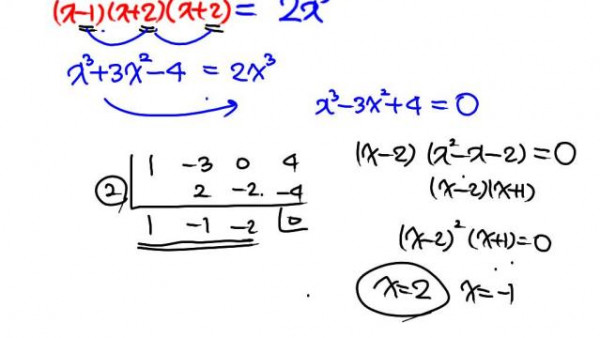 (x-1)(x+2)(x+2) = 2x³
x³+3x²-4 = 2x³
x³-3x²+4=0
1 -3 0 4
② 2 -2 -4
1 -1 -2 0
(x-2)(x²-x-2)=0
(x-2)(x+1)
(x-2)²(x+1)=0
x=2 x=-1